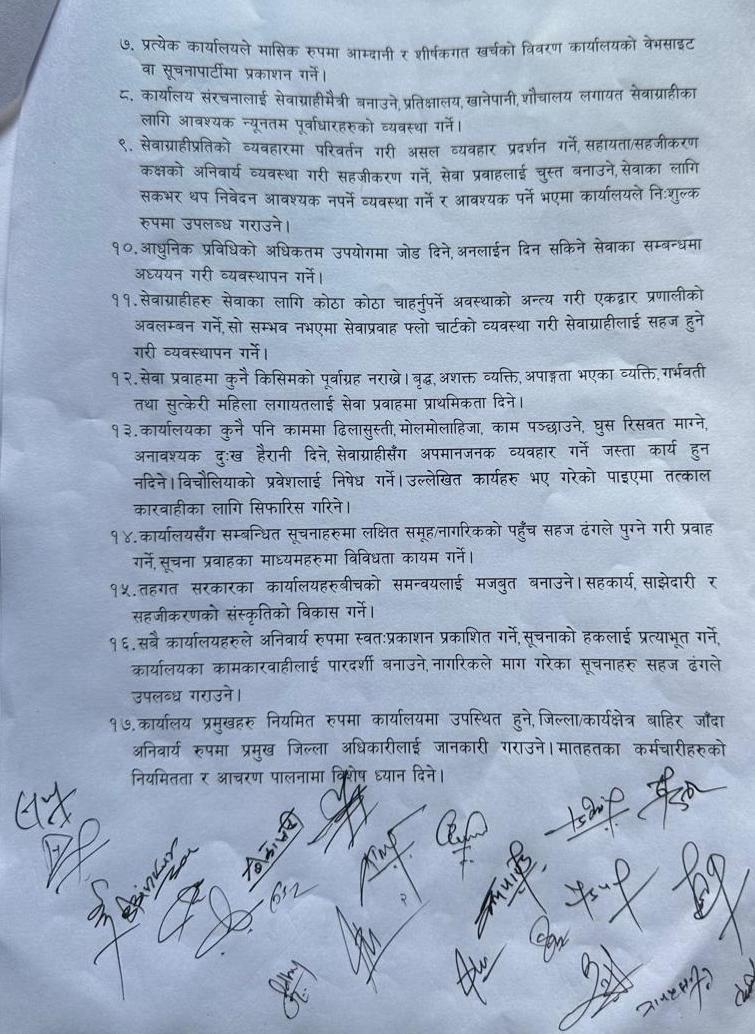 ७. प्रत्येक कार्यालयले मासिक रुपमा आम्दानी र शीर्षकगत खर्चको विवरण कार्यालयको वेभसाइट
वा सूचनापार्टीमा प्रकाशन गर्ने।
८. कार्यालय संरचनालाई सेवाग्राहीमैत्री बनाउने, प्रतिक्षालय, खानेपानी, शौचालय लगायत सेवाग्राहीका
लागि आवश्यक न्यूनतम पूर्वाधारहरुको व्यवस्था गर्ने।
९. सेवाग्राहीप्रतिको व्यवहारमा परिवर्तन गरी असल व्यवहार प्रदर्शन गर्ने, सहायता/सहजीकरण
कक्षको अनिवार्य व्यवस्था गरी सहजीकरण गर्ने, सेवा प्रवाहलाई चुस्त बनाउने, सेवाका लागि
सकभर थप निवेदन आवश्यक नपर्ने व्यवस्था गर्ने र आवश्यक पर्ने भएमा कार्यालयले नि:शुल्क
रुपमा उपलब्ध गराउने।
१०. आधुनिक प्रविधिको अधिकतम उपयोगमा जोड दिने, अनलाईन दिन सकिने सेवाका सम्बन्धमा
अध्ययन गरी व्यवस्थापन गर्ने।
११. सेवाग्राहीहरु सेवाका लागि कोठा कोठा चाहर्नुपर्ने अवस्थाको अन्त्य गरी एकद्वार प्रणालीको
अवलम्बन गर्ने, सो सम्भव नभएमा सेवाप्रवाह फ्लो चार्टको व्यवस्था गरी सेवाग्राहीलाई सहज हुने
गरी व्यवस्थापन गर्ने।
१२. सेवा प्रवाहमा कुनै किसिमको पूर्वाग्रह नराख्ने। बृद्ध, अशक्त व्यक्ति, अपाङ्गता भएका व्यक्ति, गर्भवती
तथा सुत्केरी महिला लगायतलाई सेवा प्रवाहमा प्राथमिकता दिने।
१३. कार्यालयका कुनै पनि काममा ढिलासुस्ती, मोलमोलाहिजा, काम पञ्छाउने, घुस रिसवत माग्ने,
अनावश्यक दु:ख हैरानी दिने, सेवाग्राहीसँग अपमानजनक व्यवहार गर्ने जस्ता कार्य हुन
नदिने। विचौलियाको प्रवेशलाई निषेध गर्ने। उल्लेखित कार्यहरु भए गरेको पाइएमा तत्काल
कारवाहीका लागि सिफारिस गरिने।
१४. कार्यालयसँग सम्बन्धित सूचनाहरुमा लक्षित समूह/नागरिकको पहुँच सहज ढंगले पुग्ने गरी प्रवाह
गर्ने, सूचना प्रवाहका माध्यमहरुमा विविधता कायम गर्ने।
१५. तहगत सरकारका कार्यालयहरुबीचको समन्वयलाई मजबुत बनाउने। सहकार्य, साझेदारी र
सहजीकरणको संस्कृतिको विकास गर्ने।
१६. सबै कार्यालयहरुले अनिवार्य रुपमा स्वत:प्रकाशन प्रकाशित गर्ने, सूचनाको हकलाई प्रत्याभूत गर्ने,
कार्यालयका कामकारवाहीलाई पारदर्शी बनाउने, नागरिकले माग गरेका सूचनाहरु सहज ढंगले
उपलब्ध गराउने।
१७. कार्यालय प्रमुखहरु नियमित रुपमा कार्यालयमा उपस्थित हुने, जिल्ला/कार्यक्षेत्र बाहिर जाँदा
अनिवार्य रुपमा प्रमुख जिल्ला अधिकारीलाई जानकारी गराउने। मातहतका कर्मचारीहरुको
नियमितता र आचरण पालनामा विशेष ध्यान दिने।
२